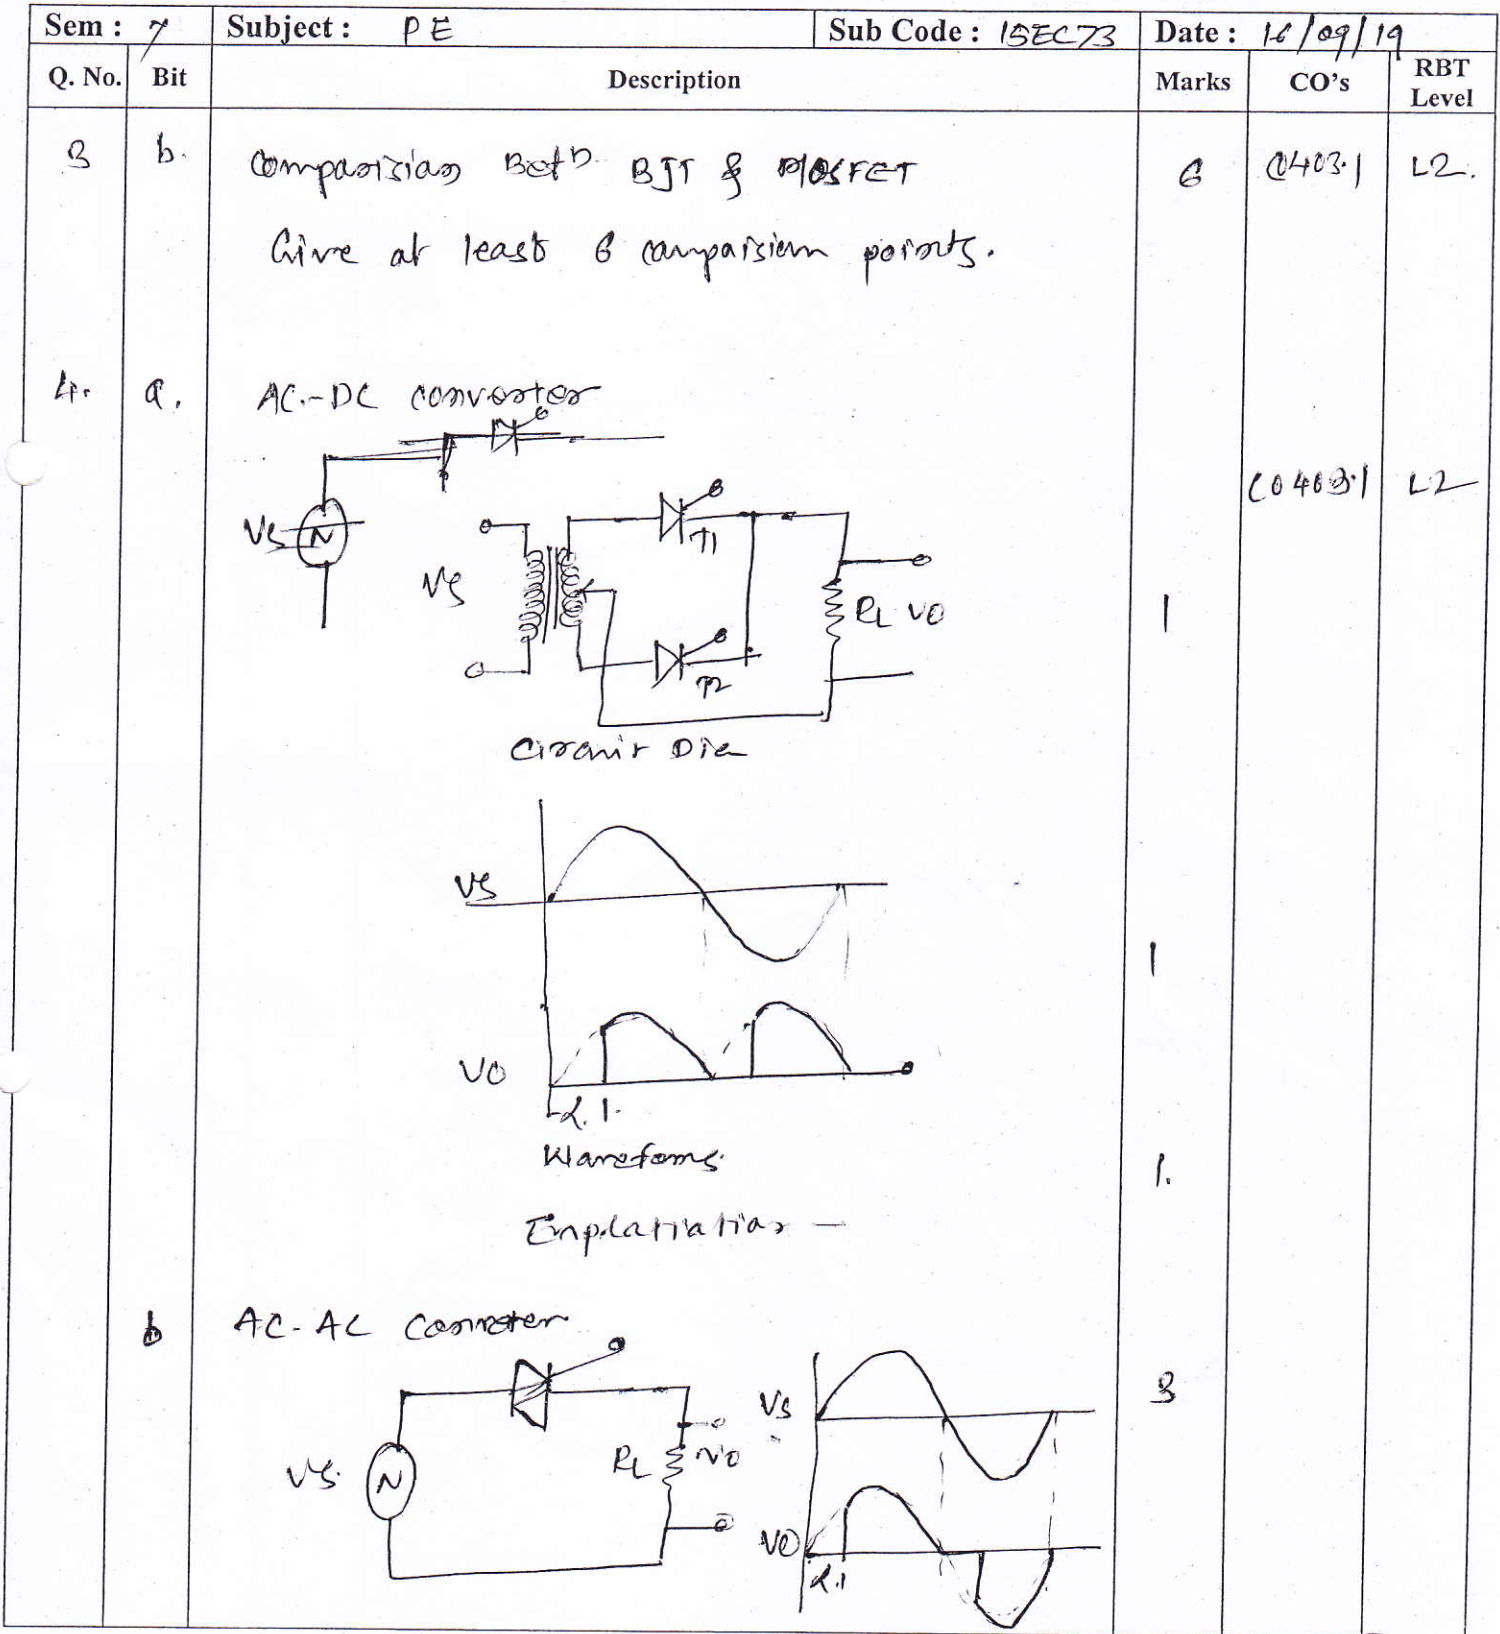 Sem : 7 Subject : PE Sub Code : 15EC73 Date : 16/09/19
Q. No. Bit Description Marks CO's RBT Level
3 b. Comparision Betn BJT & MOSFET 6 CO403.1 L2.
Give at least 6 comparision points.
4. a. AC-DC converter
CO403.1 L2
Vs
T1
Vs
RL VO
1
T2
Circuit Dia
Vs
1
VO
α.1
Waveforms.
1.
Explanation —
b AC-AC Converter
3
Vs
RL VO
Vs.
VO
α.1